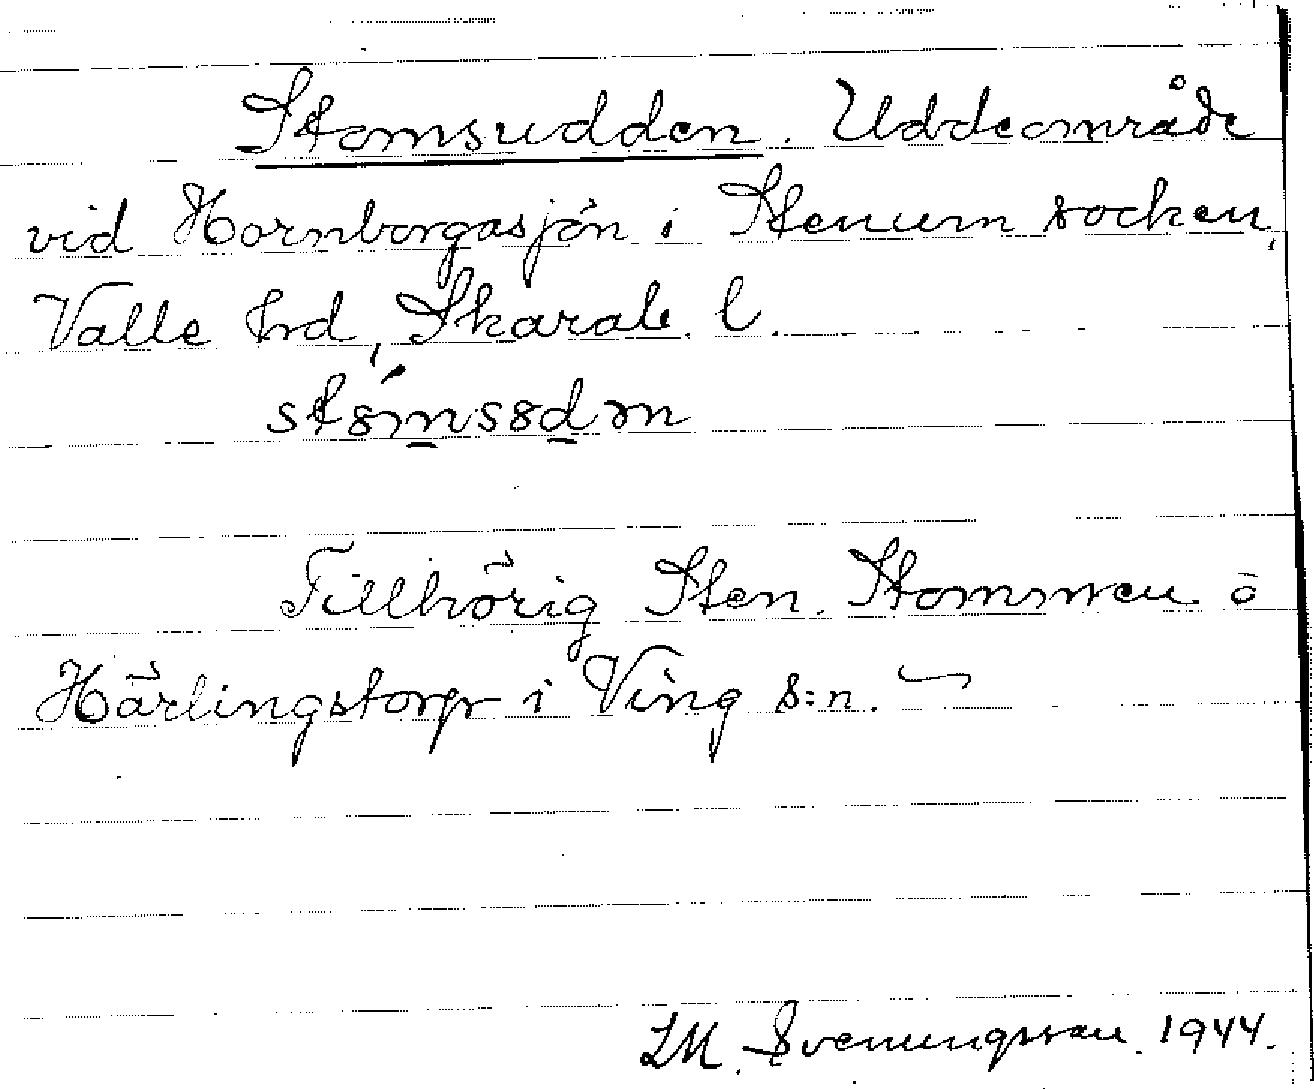 Stomsudden. Uddeområde
vid Hornborgasjön i Stenum socken,
Valle hrd, Skarab. l.
Tillhörig Sten. Stommen o
Härlingstorp i Ving s:n.
LM. Svenungsson. 1944.